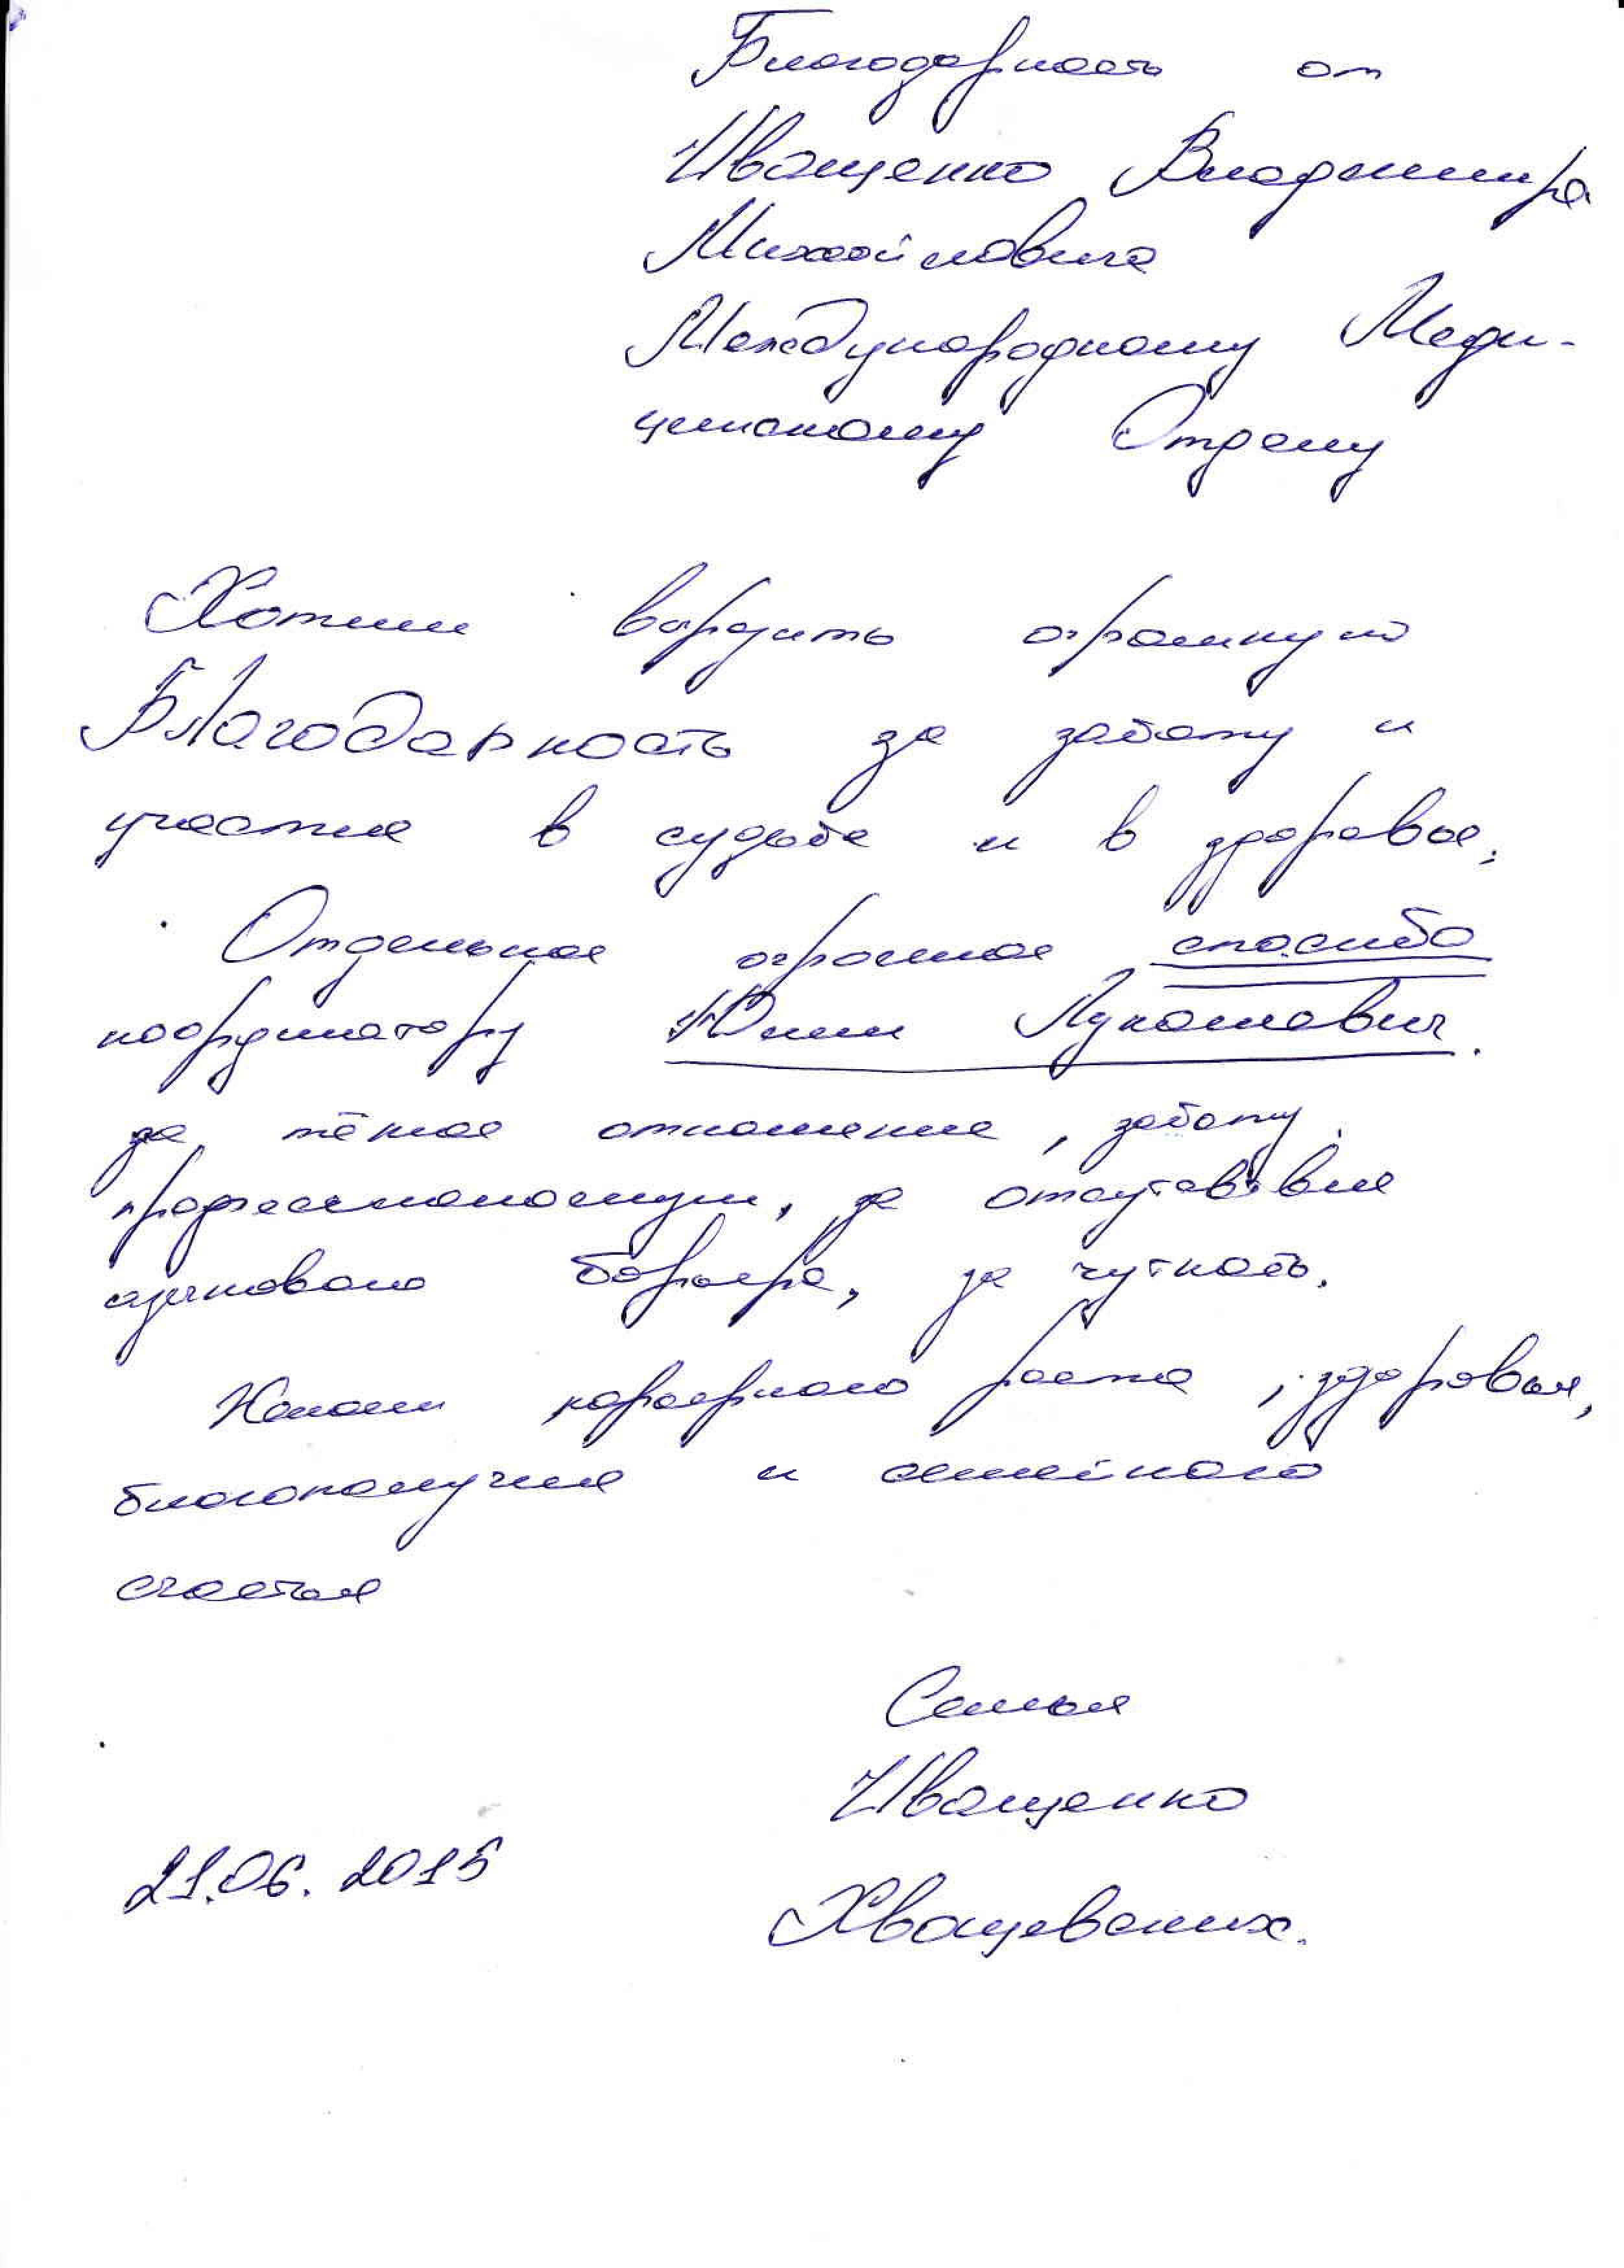 Благодарность от
Иващенко Владимира
Михайловича
Международному Меди-
цинскому Отделу
Хотим выразить огромную
Благодарность за заботу и
участие в судьбе и в здоровье.
Отдельное огромное спасибо
координатору Юлии Лукашевич.
за тёплое отношение, заботу,
профессионализм, за отсутствие
языкового барьера, за чуткость.
Желаем карьерного роста, здоровья,
благополучия и семейного
счастья
Семья
Иващенко
Хващевских.
21.06.2015